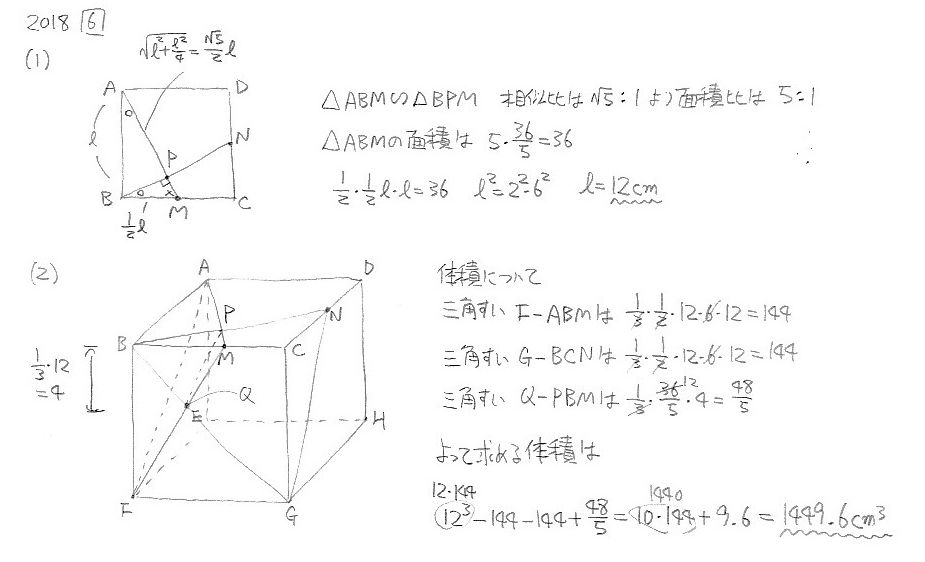 2018 6
(1)
√(l²+l²/4) = √5/2 l
A
D
N
P
l
B
M
C
1/2 l
△ABM∽△BPM 相似比は √5:1 より面積比は 5:1
△ABMの面積は 5・36/5=36
1/2・1/2 l・l=36 l²=2²・6² l=12cm
(2)
A
D
P
N
B
M
C
1/3・12
=4
Q
E
H
F
G
体積について
三角すい F-ABMは 1/3・1/2・12・6・12=144
三角すい G-BCNは 1/3・1/2・12・6・12=144
三角すい Q-PBMは 1/3・36/5・4=48/5
12
よって求める体積は
12・144
1440
12³-144-144+48/5=10・144+9.6=1449.6cm³